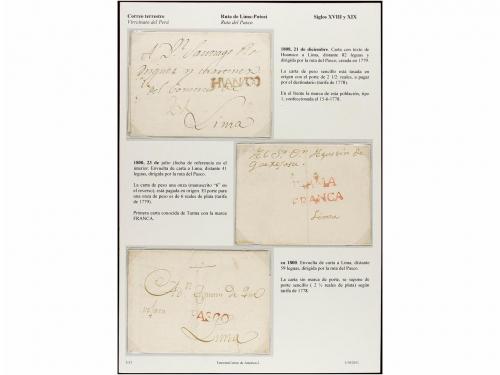 Correo terrestre
Virreinato del Perú
Ruta de Lima-Potosí
Ruta del Pasco
Siglos XVIII y XIX
1800, 21 de diciembre. Carta con texto de
Huanuco a Lima, distante 82 leguas y
dirigida por la ruta del Pasco, creada en 1779.
La carta de peso sencillo está tasada en
origen con el porte de 2 1/2 reales, a pagar
por el destinatario (tarifa de 1778).
En el frente la marca de esta población, tipo
1, confeccionada el 15-6-1778.
del
Lima
1800, 23 de julio (fecha de referencia en el
interior). Envuelta de carta a Lima, distante 41
leguas, dirigida por la ruta del Pasco.
La carta de peso una onza (manuscrito "6" en
el reverso), está pagada en origen. El porte para
una onza de peso es de 6 reales de plata (tarifa
de 1779).
Primera carta conocida de Tarma con la marca
FRANCA.
FRANCA
Lima
ca 1800. Envuelta de carta a Lima, distante
59 leguas, dirigida por la ruta del Pasco.
La carta sin marca de porte, se supone de
porte sencillo ( 2 ½ reales de plata) según
tarifa de 1778.
PASCO
Lima